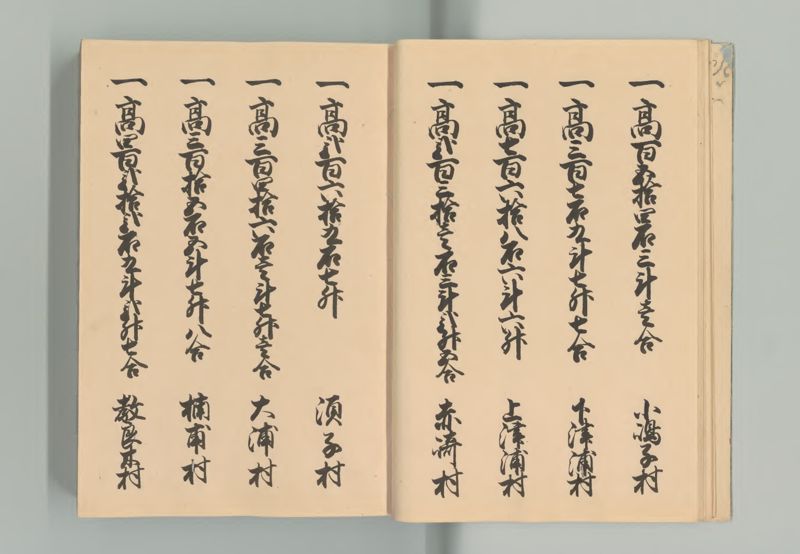 一高百五拾四石三斗壱合 小嶋子村
一高三百七石九斗七升七合 下津浦村
一高七百六拾八石六斗六升 上津浦村
一高弐百三拾壱石三斗弐升五合 赤崎村
一高弐百六拾九石七升 須子村
一高三百四拾六石壱斗七升壱合 大浦村
一高三百拾五石五斗七升八合 楠甫村
一高四百弐拾弐石九斗弐升七合 教良木村